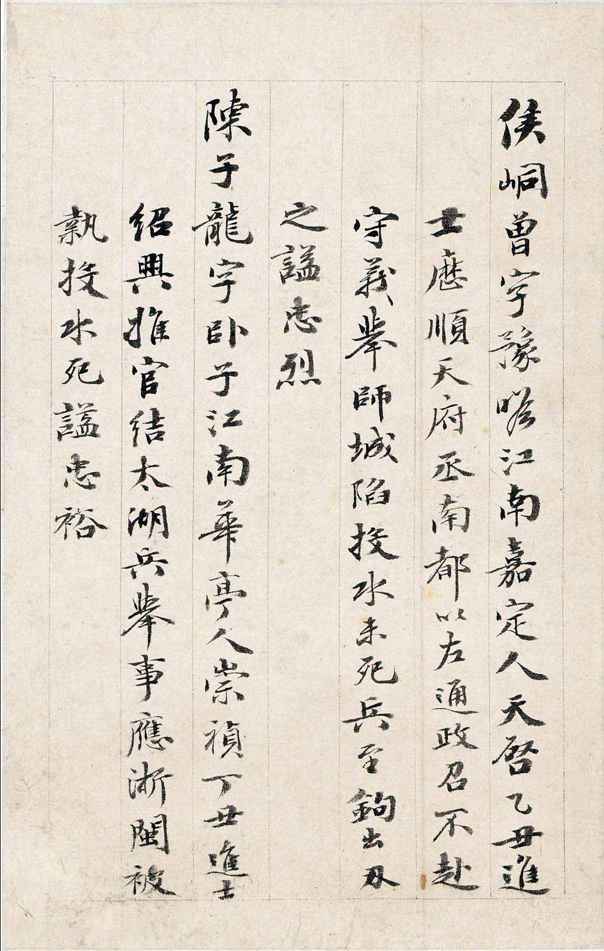 侯峒曾字豫瞻江南嘉定人天啓乙丑進
士歷順天府丞南都以左通政召不赴
守義舉師城陷投水未死兵至鉤出刃
之謚忠烈
陳子龍字臥子江南華亭人崇禎丁丑進士
紹興推官結太湖兵舉事應浙閩被
執投水死謚忠裕